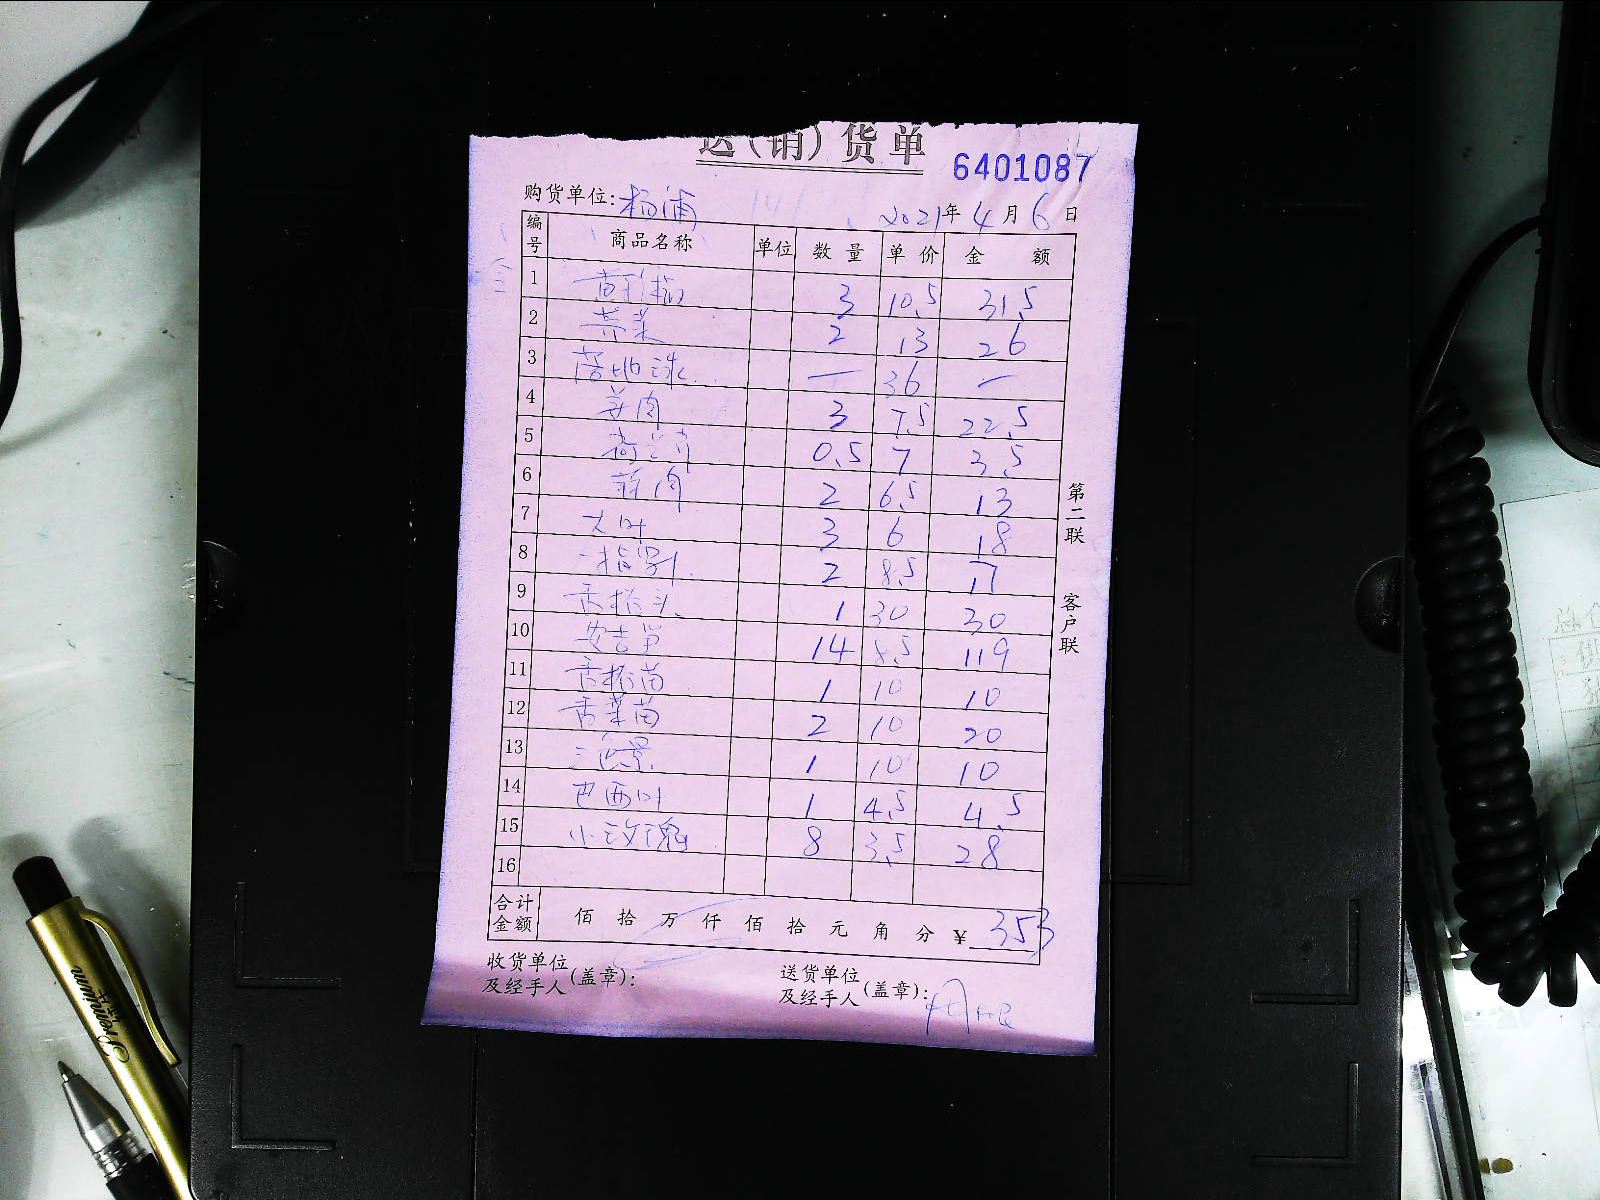 送(销)货单
6401087
购货单位:杨浦 2021年4月6日
编号 商品名称 单位 数量 单价 金额
1 3 10.5 31.5
2 2 13 26
3 落地球 — 36 —
4 姜肉 3 7.5 22.5
5 荷兰芹 0.5 7 3.5
6 蒜肉 2 6.5 13
7 大叶 3 6 18
8 2 8.5 17
9 1 30 30
10 安吉 14 8.5 119
11 1 10 10
12 香菜苗 2 10 20
13 三色堇 1 10 10
14 巴西叶 1 4.5 4.5
15 小玫瑰 8 3.5 28
16
合计金额 佰 拾 万 仟 佰 拾 元 角 分 ¥353
收货单位及经手人(盖章): 送货单位及经手人(盖章):
第二联 客户联
Premium